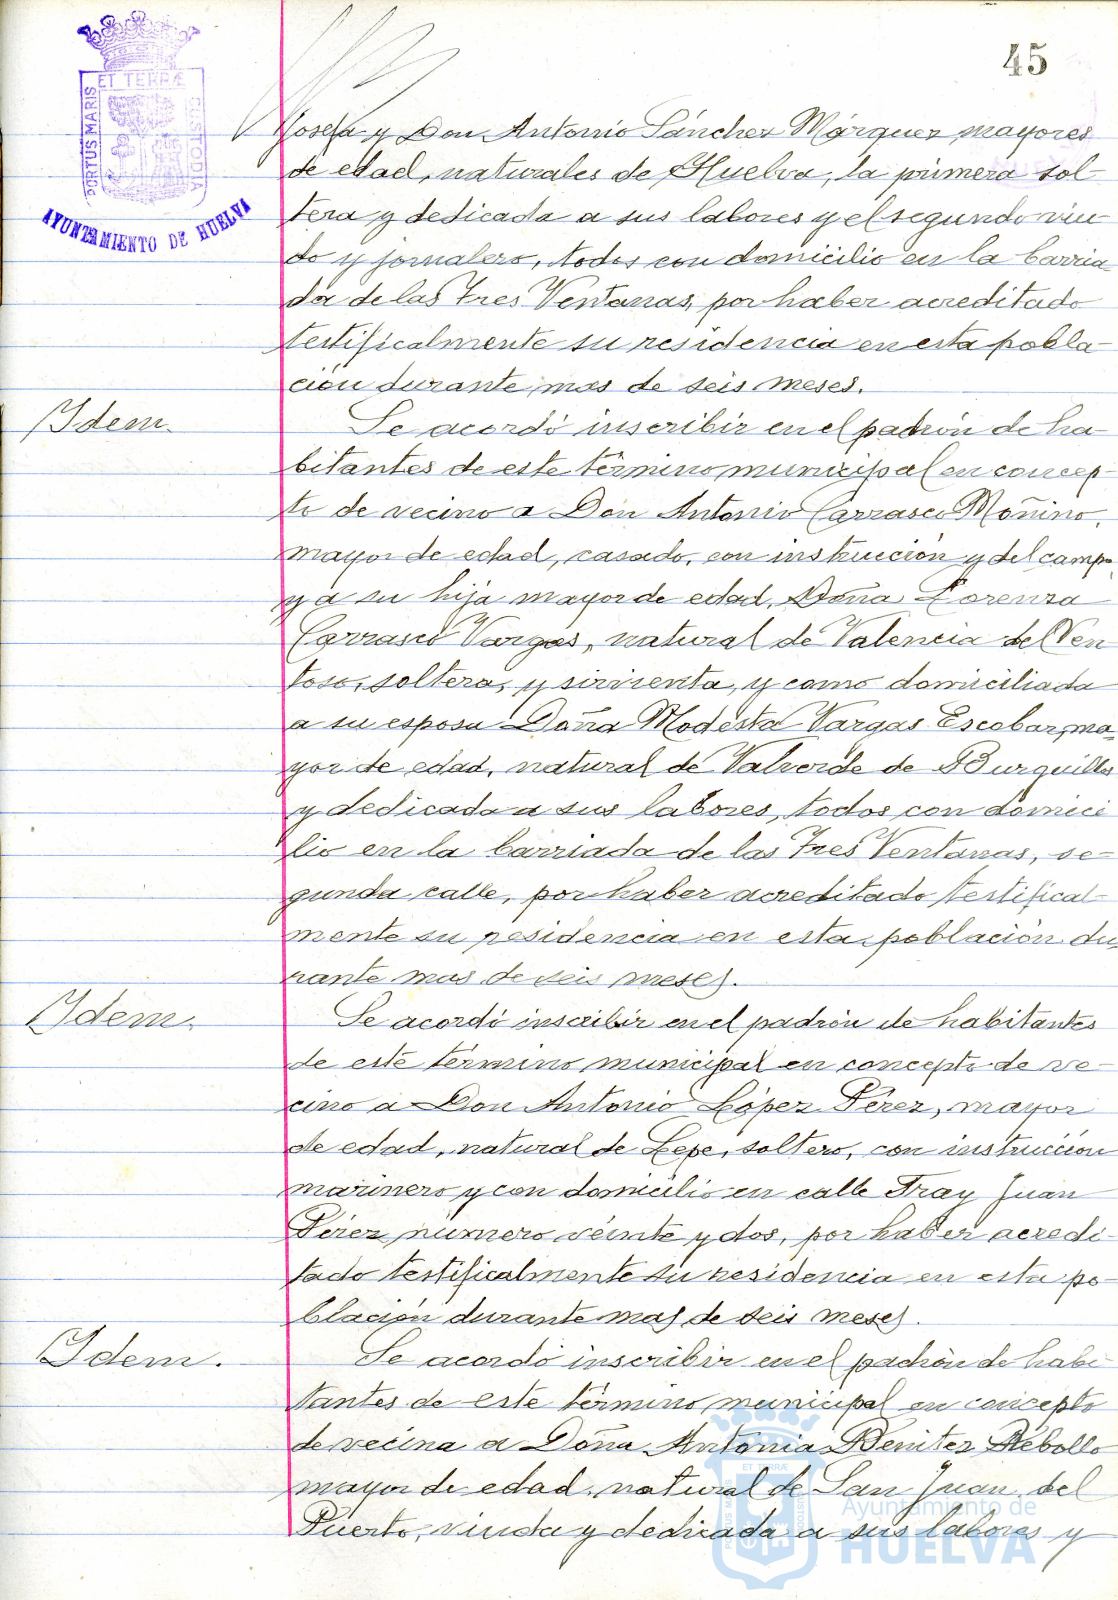 45
ET TERRÆ
PORTUS MARIS
CUSTODIA
AYUNTAMIENTO DE HUELVA
Josefa y Don Antonio Sánchez Márquez mayores
de edad, naturales de Huelva, la primera sol-
tera y dedicada a sus labores y el segundo viu-
do y jornalero, todos con domicilio en la barria
da de las Tres Ventanas, por haber acreditado
testificalmente su residencia en esta pobla-
ción durante mas de seis meses.
Idem.
Se acordó inscribir en el padrón de ha-
bitantes de este término municipal en concep-
to de vecino a Don Antonio Carrasco Moñino,
mayor de edad, casado, con instrucción y del campo
y a su hija mayor de edad, Doña Lorenza
Carrasco Vargas, natural de Valencia del Ven
toso, soltera, y sirvienta, y como domiciliada
a su esposa Doña Modesta Vargas Escobar, ma-
yor de edad, natural de Valverde de Burguillos
y dedicada a sus labores, todos con domici
lio en la barriada de las Tres Ventanas, se-
gunda calle, por haber acreditado testifical-
mente su residencia en esta población du-
rante mas de seis meses.
Idem.
Se acordó inscribir en el padrón de habitantes
de este término municipal en concepto de ve-
cino a Don Antonio López Pérez, mayor
de edad, natural de Lepe, soltero, con instrucción
marinero y con domicilio en calle Fray Juan
Pérez número veinte y dos, por haber acredi-
tado testificalmente su residencia en esta po-
blación durante mas de seis meses.
Idem.
Se acordó inscribir en el padrón de habi
tantes de este término municipal en concepto
de vecina a Doña Antonia Benitez Rebollo
mayor de edad, natural de San Juan del
Puerto, viuda y dedicada a sus labores y
Ayuntamiento de
HUELVA